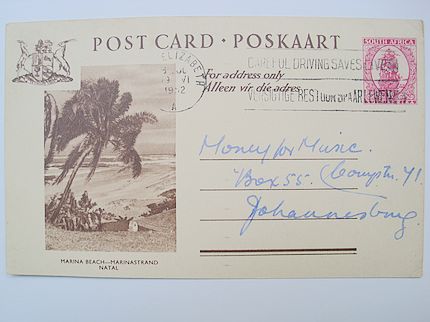 POST CARD • POSKAART
SOUTH AFRICA
ELIZABETH
VI
1952
A
CAREFUL DRIVING SAVES LIVES
VERSIGTIGE BESTUUR SPAAR LEWENS
For address only
Alleen vir die adres
Money for Music.
Box 55. Comptn. 71.
Johannesburg.
MARINA BEACH—MARINASTRAND
NATAL